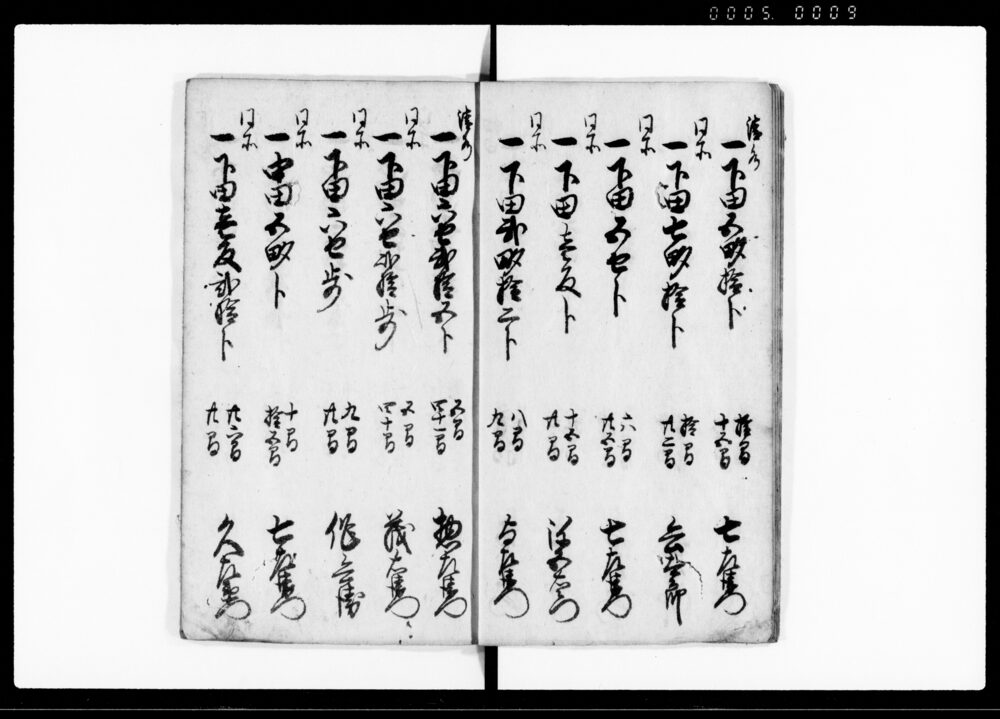 0005. 0009
清水
一下田五畝拾卜
拾間
十六間
七左衛門
同所
一下田七畝拾卜
拾間
廿二間
同所
一下田五セ卜
六間
廿五間
七左衛門
同所
一下田壱反卜
十五間
廿間
同所
一下田弐畝拾二卜
八間
九間
与左衛門
清水
一下田六セ弐拾五卜
五間
四十一間
惣左衛門
同所
一下田六セ弐拾歩
五間
四十間
茂左衛門
同所
一下田六セ歩
九間
廿間
作兵衛
同所
一中田五畝卜
十間
拾五間
七左衛門
同所
一下田壱反弐拾卜
廿間
久左衛門